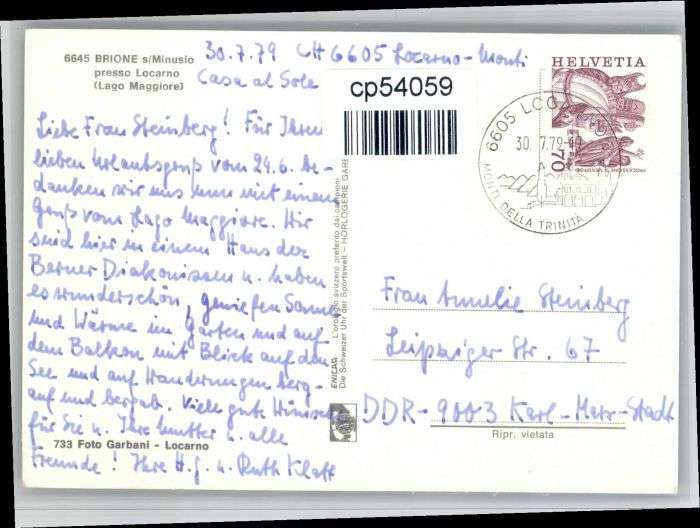 6645 BRIONE s/Minusio
presso Locarno
(Lago Maggiore)
30.7.79 CH 6605 Locarno-Monti
Casa al Sole
cp54059
HELVETIA
70
6605 LOCARNO
30.7.79
MONTI DELLA TRINITÀ
Liebe Frau Steinberg! Für Ihren
lieben Urlaubsgruß vom 24.6. be-
danken wir uns nun mit einem
Gruß vom Lago Maggiore. Wir
sind hier in einem Haus der
Berner Diakonissen u. haben
es wunderschön, genießen Sonne
und Wärme im Garten und auf
dem Balkon mit Blick auf den
See und auf Wanderungen berg-
auf und bergab. Viele gute Wünsche
für Sie u. Ihre Mutter u. alle
Freunde! Ihre H.G. u. Ruth Klatt
733 Foto Garbani - Locarno
ENICAR - L'orologio svizzero preferito dai campioni
Die Schweizer Uhr der Sportswelt - HORLOGERIE GARE
Frau Annelie Steinberg
Leipziger Str. 67
DDR-9003 Karl-Marx-Stadt
Ripr. vietata